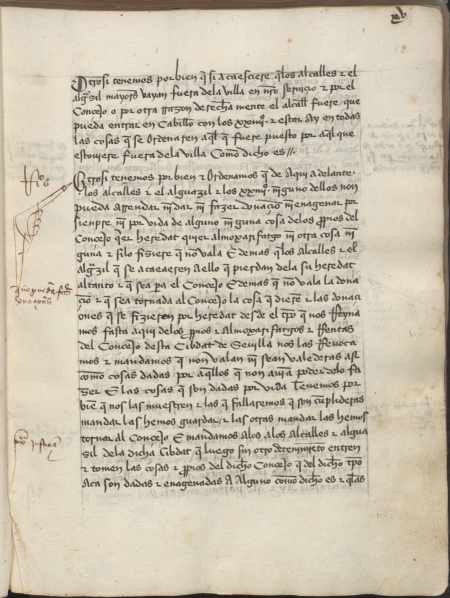 Otrosi tenemos por bien q si acaesciere q los alcalles & el
alguasil mayores vayan fuera dela villa en nro seruicio & por el
Concejo o por otra rrazon derecha mente el alcall fuere que
pueda entrar en Cabillo con los xxiiijº & estar ay en todas
las cosas q se ordenaren aql q fuere puesto por aql que
estouiere fuera dela villa Como dicho es //
Otrosi tenemos por bien & Ordenamos q de aqui adelante
los alcalles & el alguazil & los xxiiijº ninguno dellos non
pueda arrendar nin dar nin fazer donacio nin enagenar por
sienpre nin por vida de alguno ninguna cosa delos propios del
Concejo qer heredat quier almoxarifazgo nin otra cosa nin
guna & si lo fisiere q no vala E demas q los Alcalles & el
Algzil q se acaecieren a ello q pierdan dela su heredat
altanto & q sea pa el Concejo E demas q no vala la dona
cio & q sea tornada al Concejo la cosa q diere & las donaci
ones q se fizieron por heredat desde el tpo q nos Reyna
mos fasta aqui delos propios & Almoxarifazgos & Rentas
del Concejo desta Cibdat de Seuilla nos las Reuoca
mos & mandamos q non valan nin sean valederas asi
como cosas dadas por aqllos q non auia poder delo fa
ser E las cosas q son dadas por vida Tenemos por
bie q nos las muestren & las q fallaremos q son conplideras
mandar las hemos guardar & las otras mandar las hemos
tornar al Concejo E mandamos alos Alcalles & algua
sil dela dicha Cibdat q luego sin otro detenimieto entren
& tomen las cosas & propios del dicho Concejo q del dicho tpo
Aca son dadas & enagenadas A Alguno como dicho es & qlas